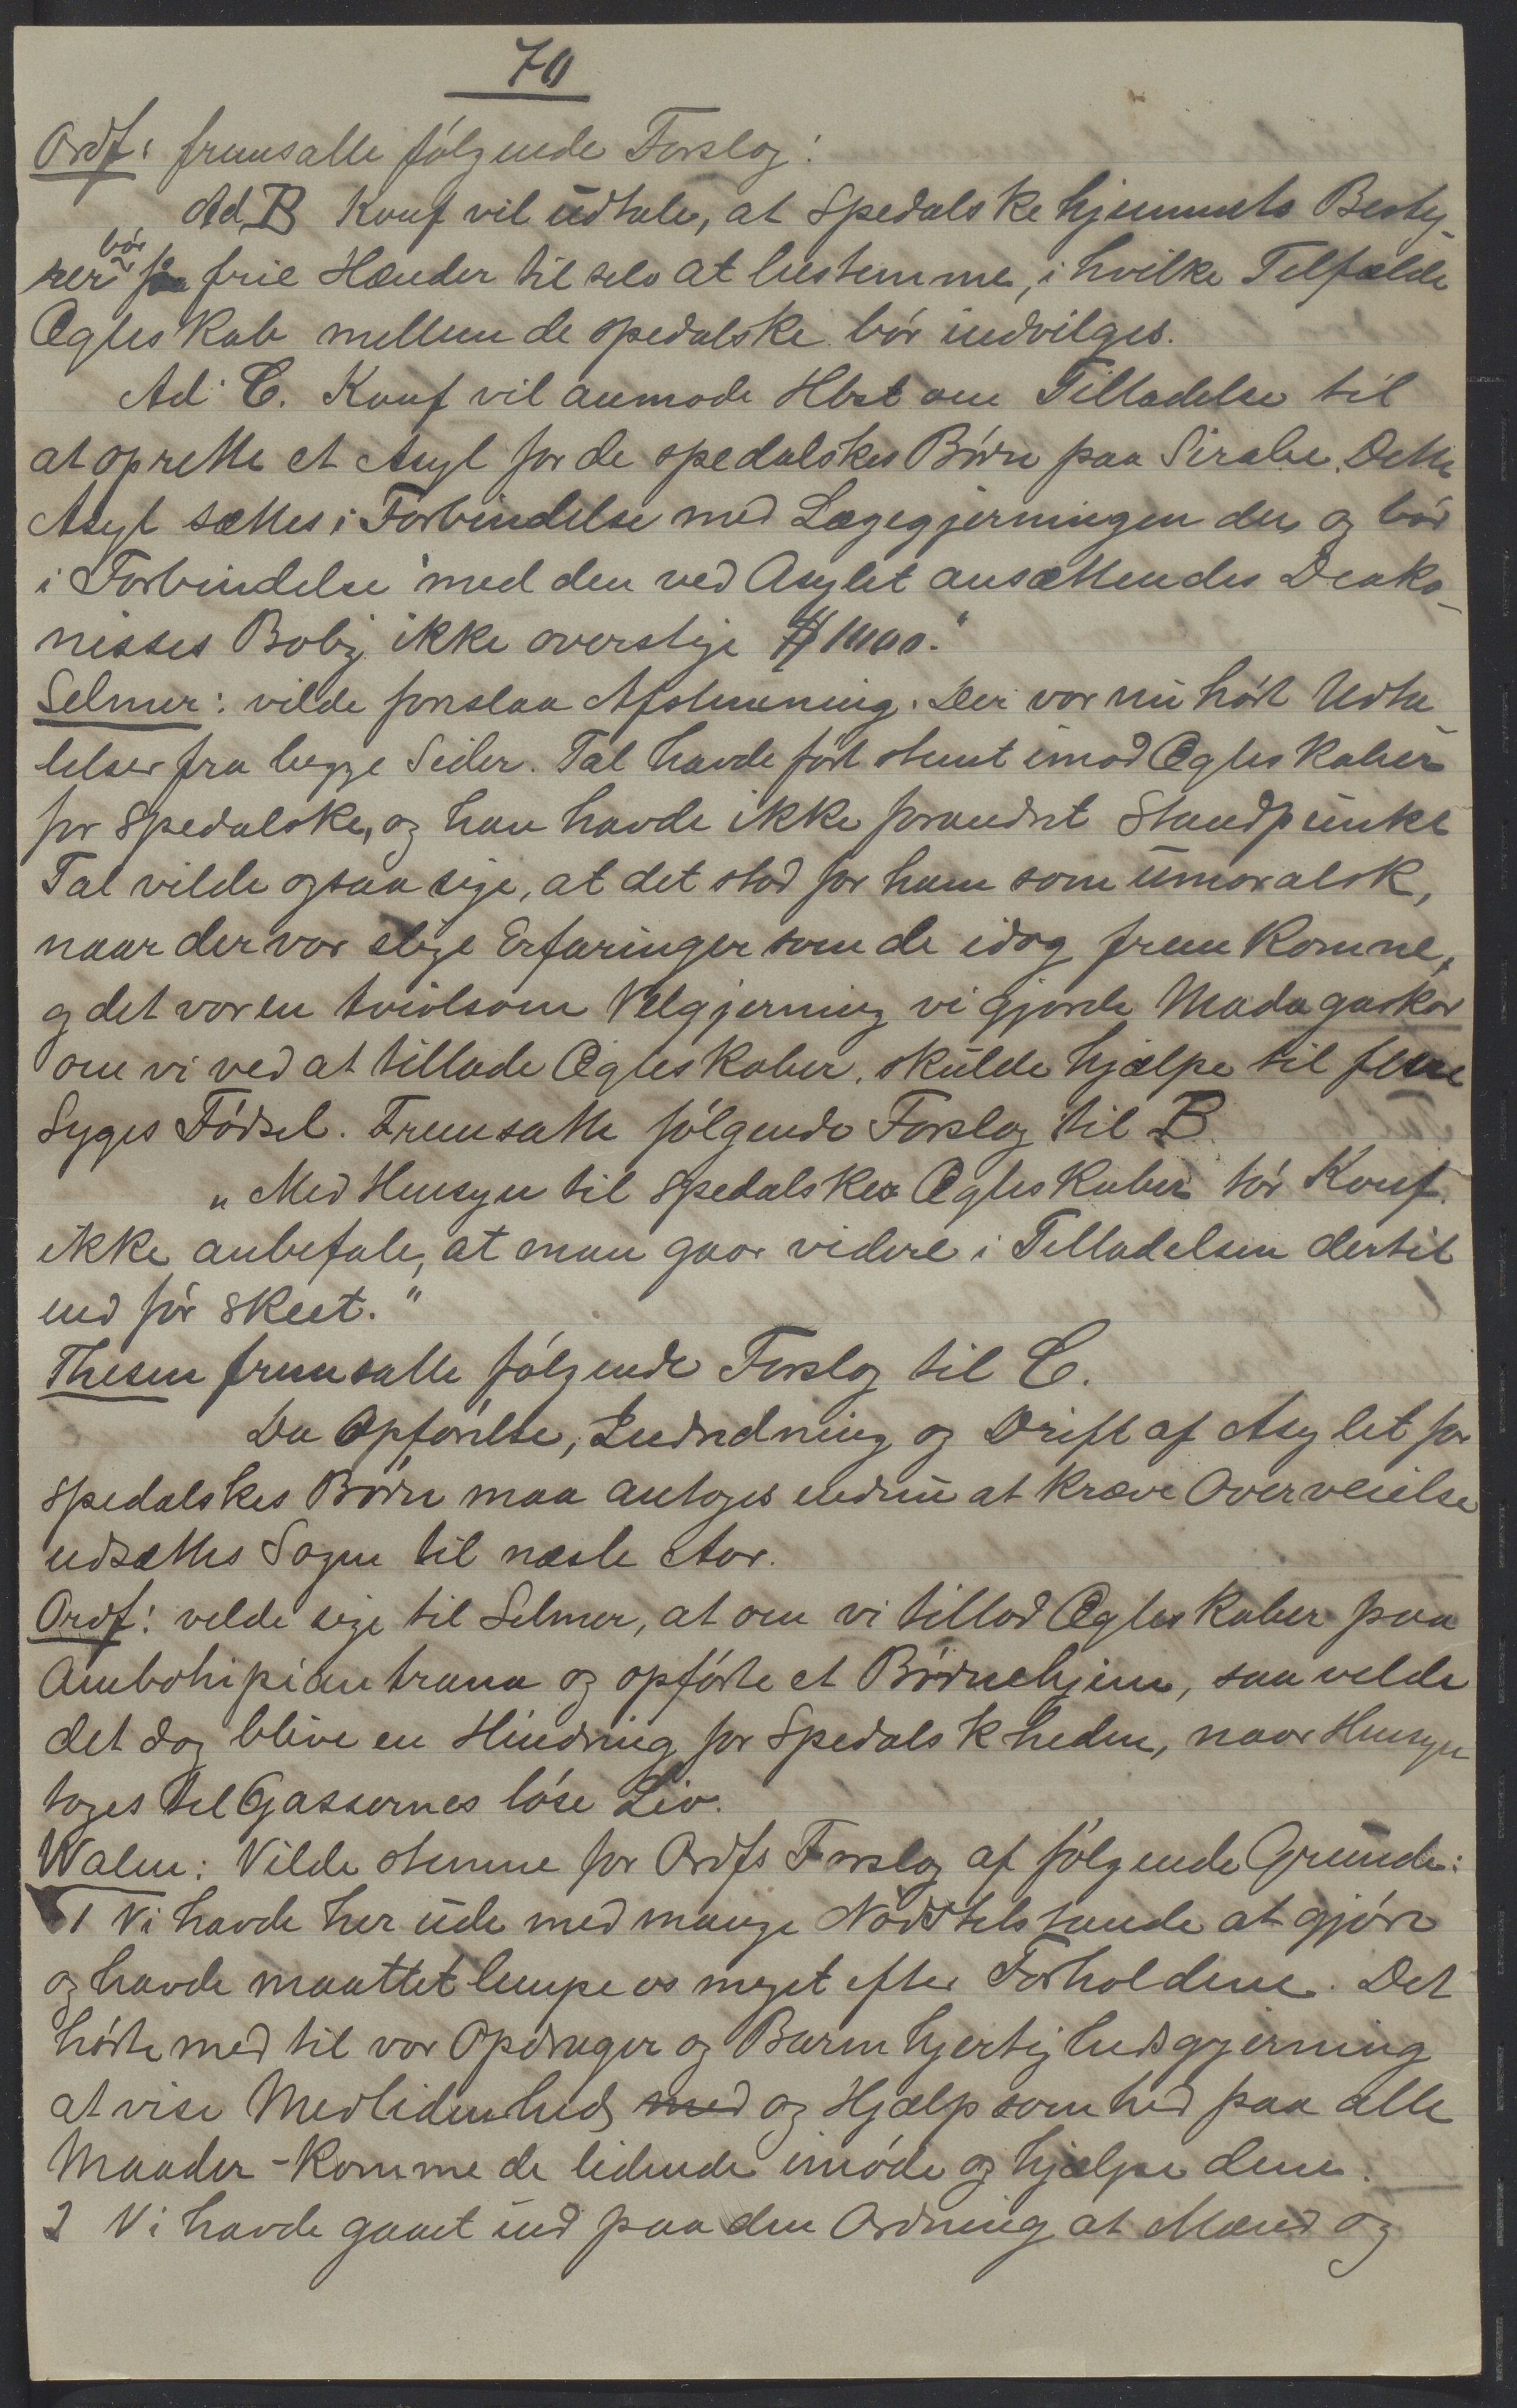 70
Ordf: fremsatte følgende Forslag:
Ad B Konf vil udtale, at Spedalskehjemmets Besty-
rer bør faa frie Hænder til selv at bestemme, i hvilke Tilfælde
Ægteskab mellem de spedalske bør indvilges.
Ad C. Konf vil anmode Hbst om Tilladelse til
at oprette et Asyl for de spedalskes Børn paa Sirabe. Dette
Asyl sættes i Forbindelse med Lægegjerningen der, og bør
i Forbindelse med den ved Asylet ansættendes Diako-
nisses Bolig ikke overstige $ 1000."
Selmer: vilde foreslaa Afstemning. Der var nu hørt Udta-
lelser fra begge Sider. Tal havde før stemt imod Ægteskaber
for Spedalske, og han havde ikke forandret Standpunkt
Tal vilde ogsaa sige, at det stod for ham som umoralsk,
naar der var slige Erfaringer som de idag fremkomne,
og det var en tvivlsom Velgjerning vi gjorde Madagaskar
om vi ved at tillade Ægteskaber, skulde hjælpe til flere
Syges Fødsel. Fremsatte følgende Forslag til B
"Med Hensyn til Spedalskes Ægteskaber tør Konf.
ikke anbefale, at man gaar videre i Tilladelsen dertil
end før skeet."
Thesen fremsatte følgende Forslag til C.
Da Opførelse, Indredning og Drift af Asylet for
spedalskes Børn maa antages endnu at kræve Overveielse
udsættes Sagen til næste Aar.
Ordf: vilde sige til Selmer, at om vi tillod Ægteskaber paa
Ambohipiantrana og opførte et Børnehjem, saa vilde
det dog blive en Hindring for Spedalskheden, naar Hensyn
toges til Gassernes løse Liv.
Walen: Vilde stemme for Ordfs Forslag af følgende Grunde:
1 Vi havde her ude med mange Nødstilstande at gjøre
og havde maattet lempe os meget efter Forholdene. Det
hørte med til vor Opdrager og Barmhjertighedsgjerning
at vise Medlidenhed, med og Hjælpsomhed paa alle
Maader - komme de lidende imøde og hjælpe dem.
2 Vi havde gaaet ind paa den Ordning at Mænd og